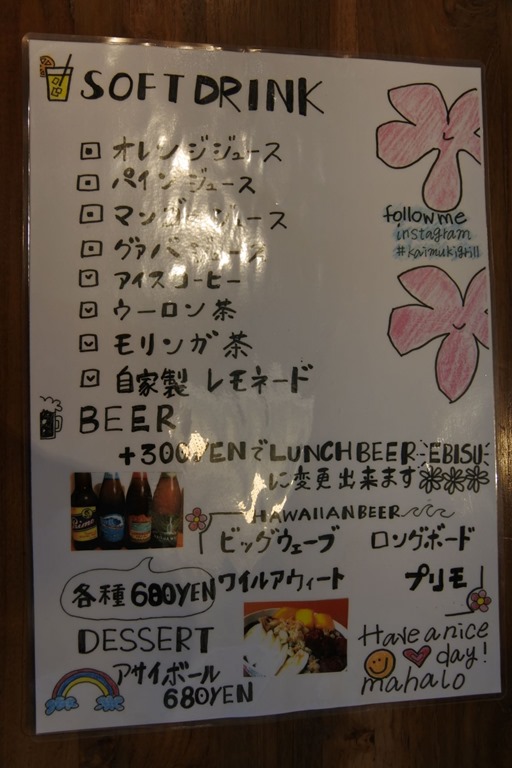 SOFT DRINK
オレンジジュース
パインジュース
マンゴージュース
グァバジュース
アイスコーヒー
ウーロン茶
モリンガ茶
自家製 レモネード
follow me
instagram
#kaimukigrill
BEER
+300YENでLUNCHBEER EBISU
に変更出来ます
HAWAIIANBEER
ビッグウェーブ ロングボード
ワイルアウィート プリモ
各種 680YEN
Primo
DESSERT
アサイボール
680YEN
Have a nice
day!
mahalo